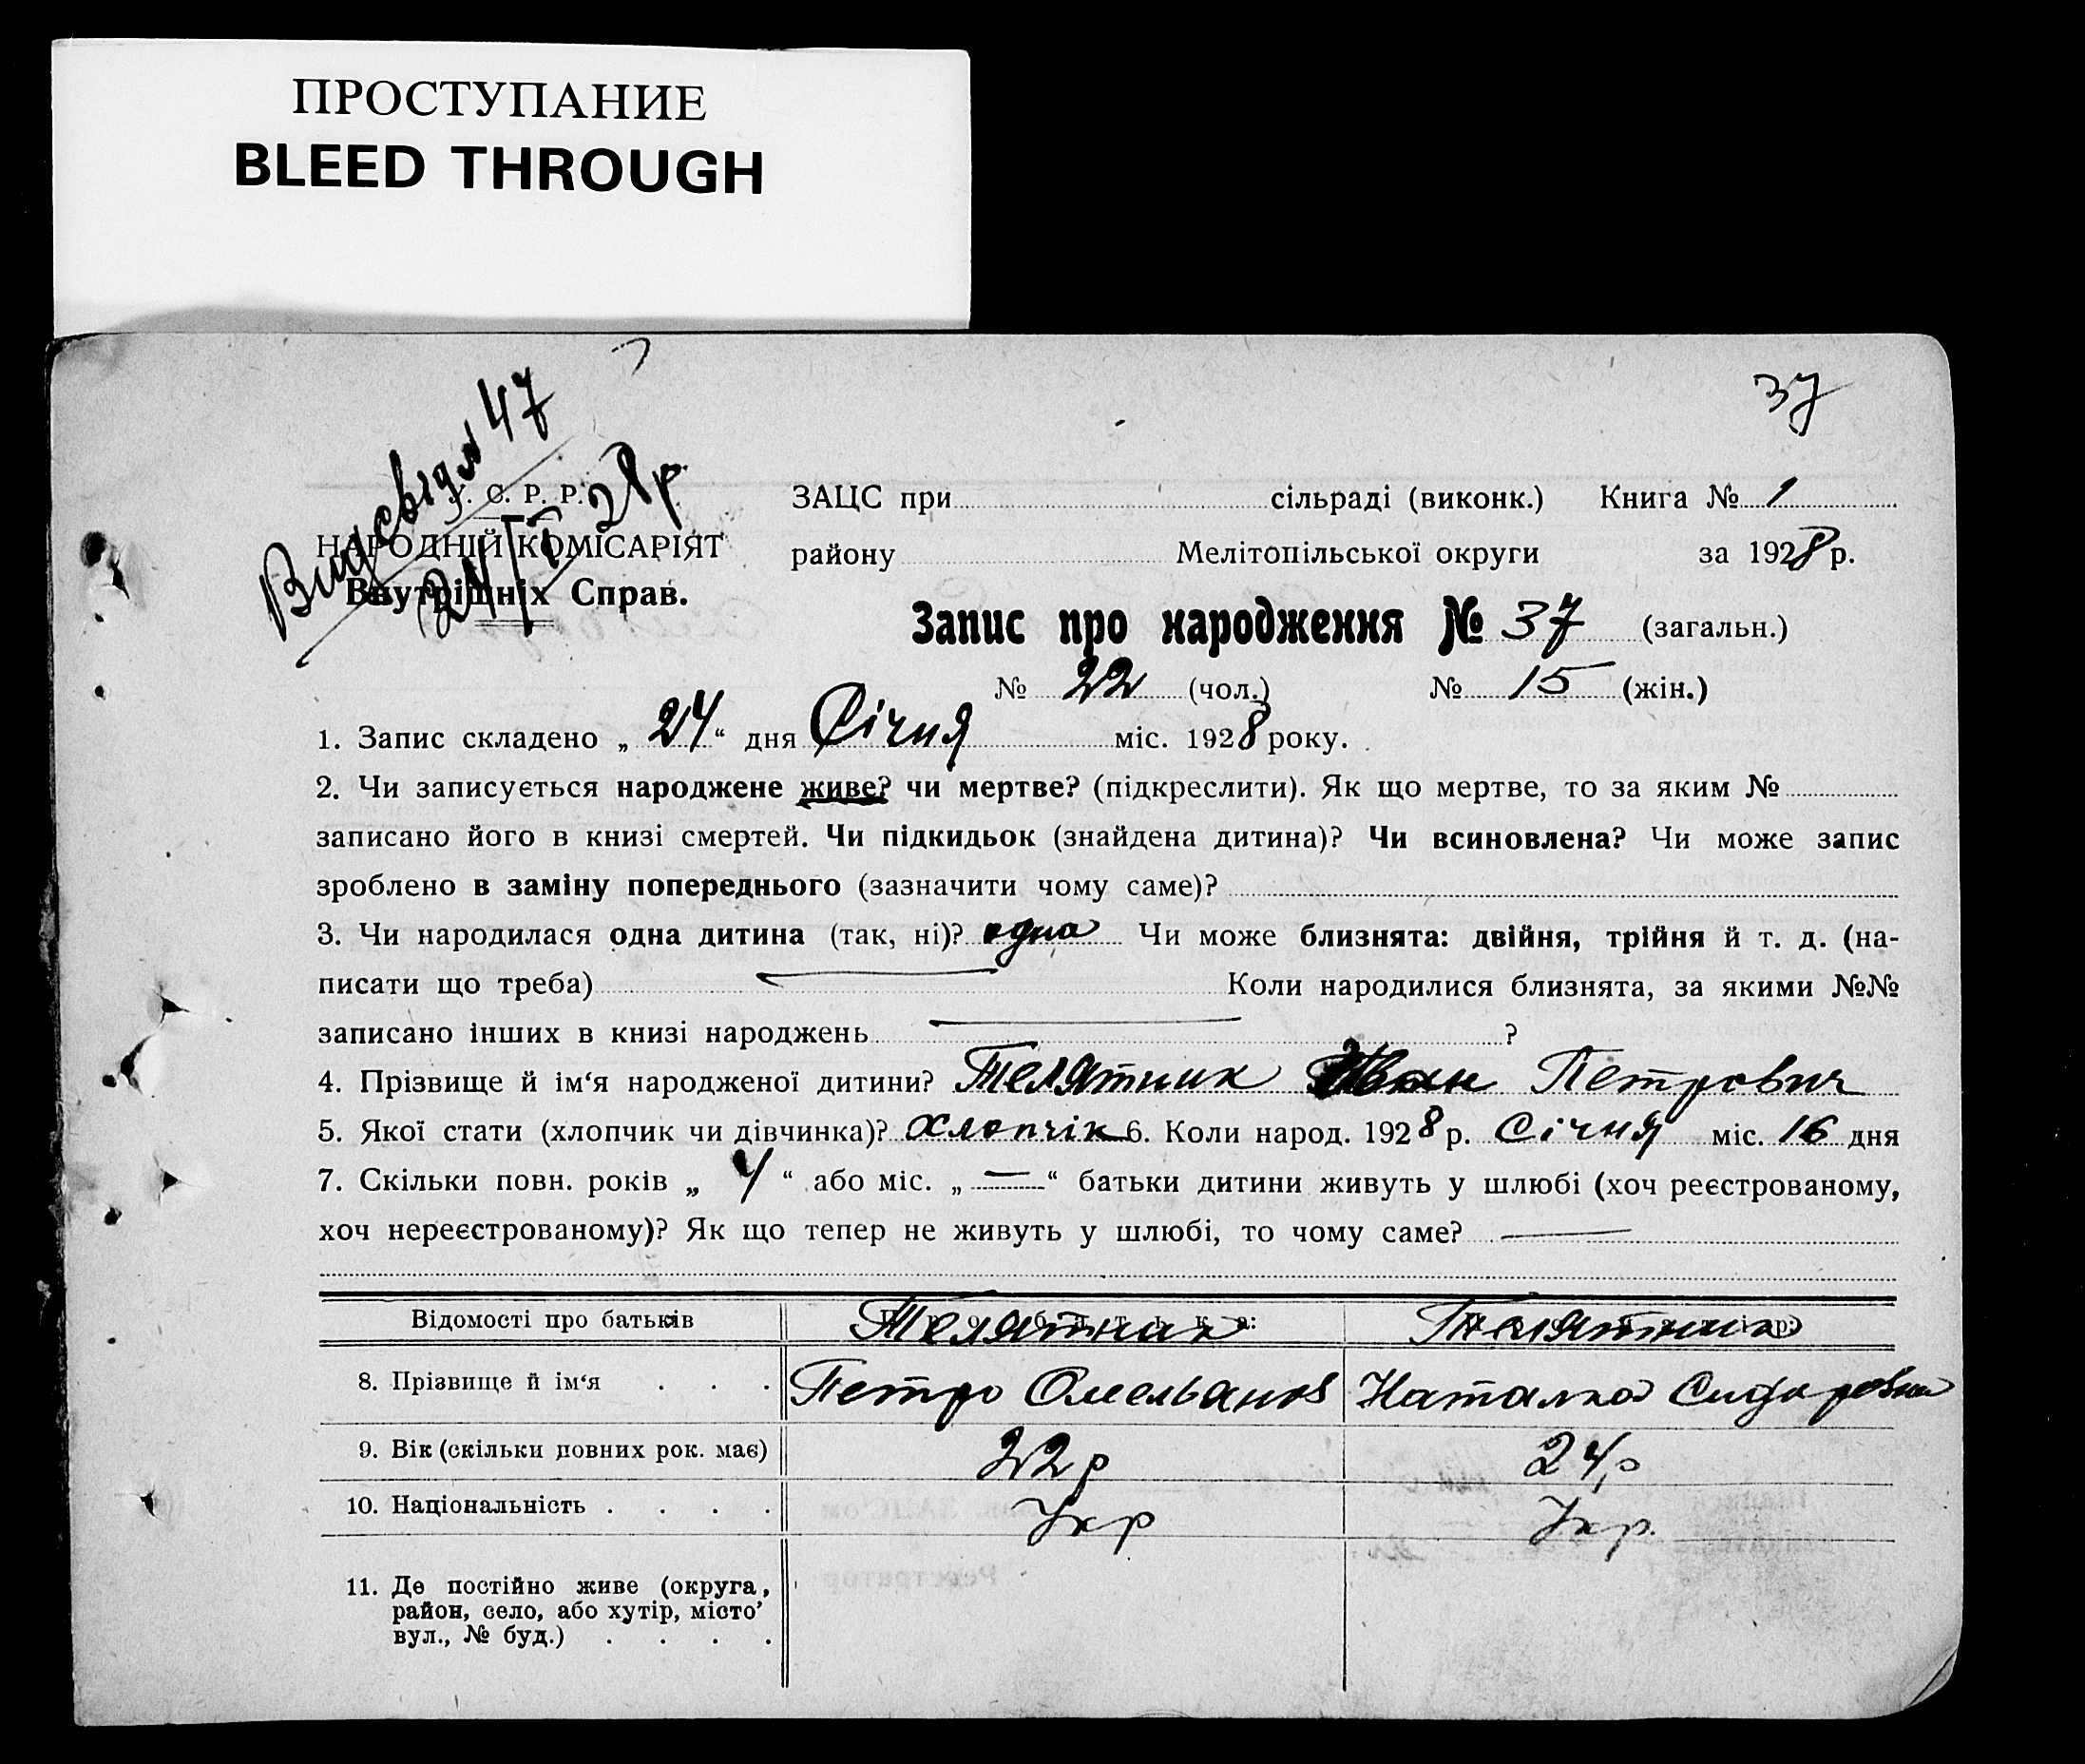 ПРОСТУПАНИЕ
BLEED THROUGH
37
47
24/I 28р.
У. С. Р. Р.
НАРОДНІЙ КОМІСАРІЯТ
Внутрішніх Справ.
ЗАЦС при сільраді (виконк.) Книга № 1
району Мелітопільської округи за 1928 р.
Запис про народження № 37 (загальн.)
№ 22 (чол.) № 15 (жін.)
1. Запис складено „ 24 “ дня Січня міс. 1928 року.
2. Чи записується народжене живе? чи мертве? (підкреслити). Як що мертве, то за яким №
записано його в книзі смертей. Чи підкидьок (знайдена дитина)? Чи всиновлена? Чи може запис
зроблено в заміну попереднього (зазначити чому саме)?
3. Чи народилася одна дитина (так, ні)? одна Чи може близнята: двійня, трійня й т. д. (на-
писати що треба) — Коли народилися близнята, за якими №№
записано інших в книзі народжень — ?
4. Прізвище й ім‘я народженої дитини? Телятник Іван Петрович
5. Якої стати (хлопчик чи дівчинка)? Хлопчік 6. Коли народ. 1928 р. Січня міс. 16 дня
7. Скільки повн. років „ 4 “ або міс. „ — “ батьки дитини живуть у шлюбі (хоч реєстрованому,
хоч нереєстрованому)? Як що тепер не живуть у шлюбі, то чому саме? —
Відомості про батьків Про батька: Телятник Телятник
8. Прізвище й ім‘я . . . Петро Омельанов Наталка Сидоровна
9. Вік (скільки повних рок. має) 22 р 24 р
10. Національність . . . . Укр Укр.
11. Де постійно живе (округа,
район, село, або хутір, місто’
вул., № буд.) . . . .